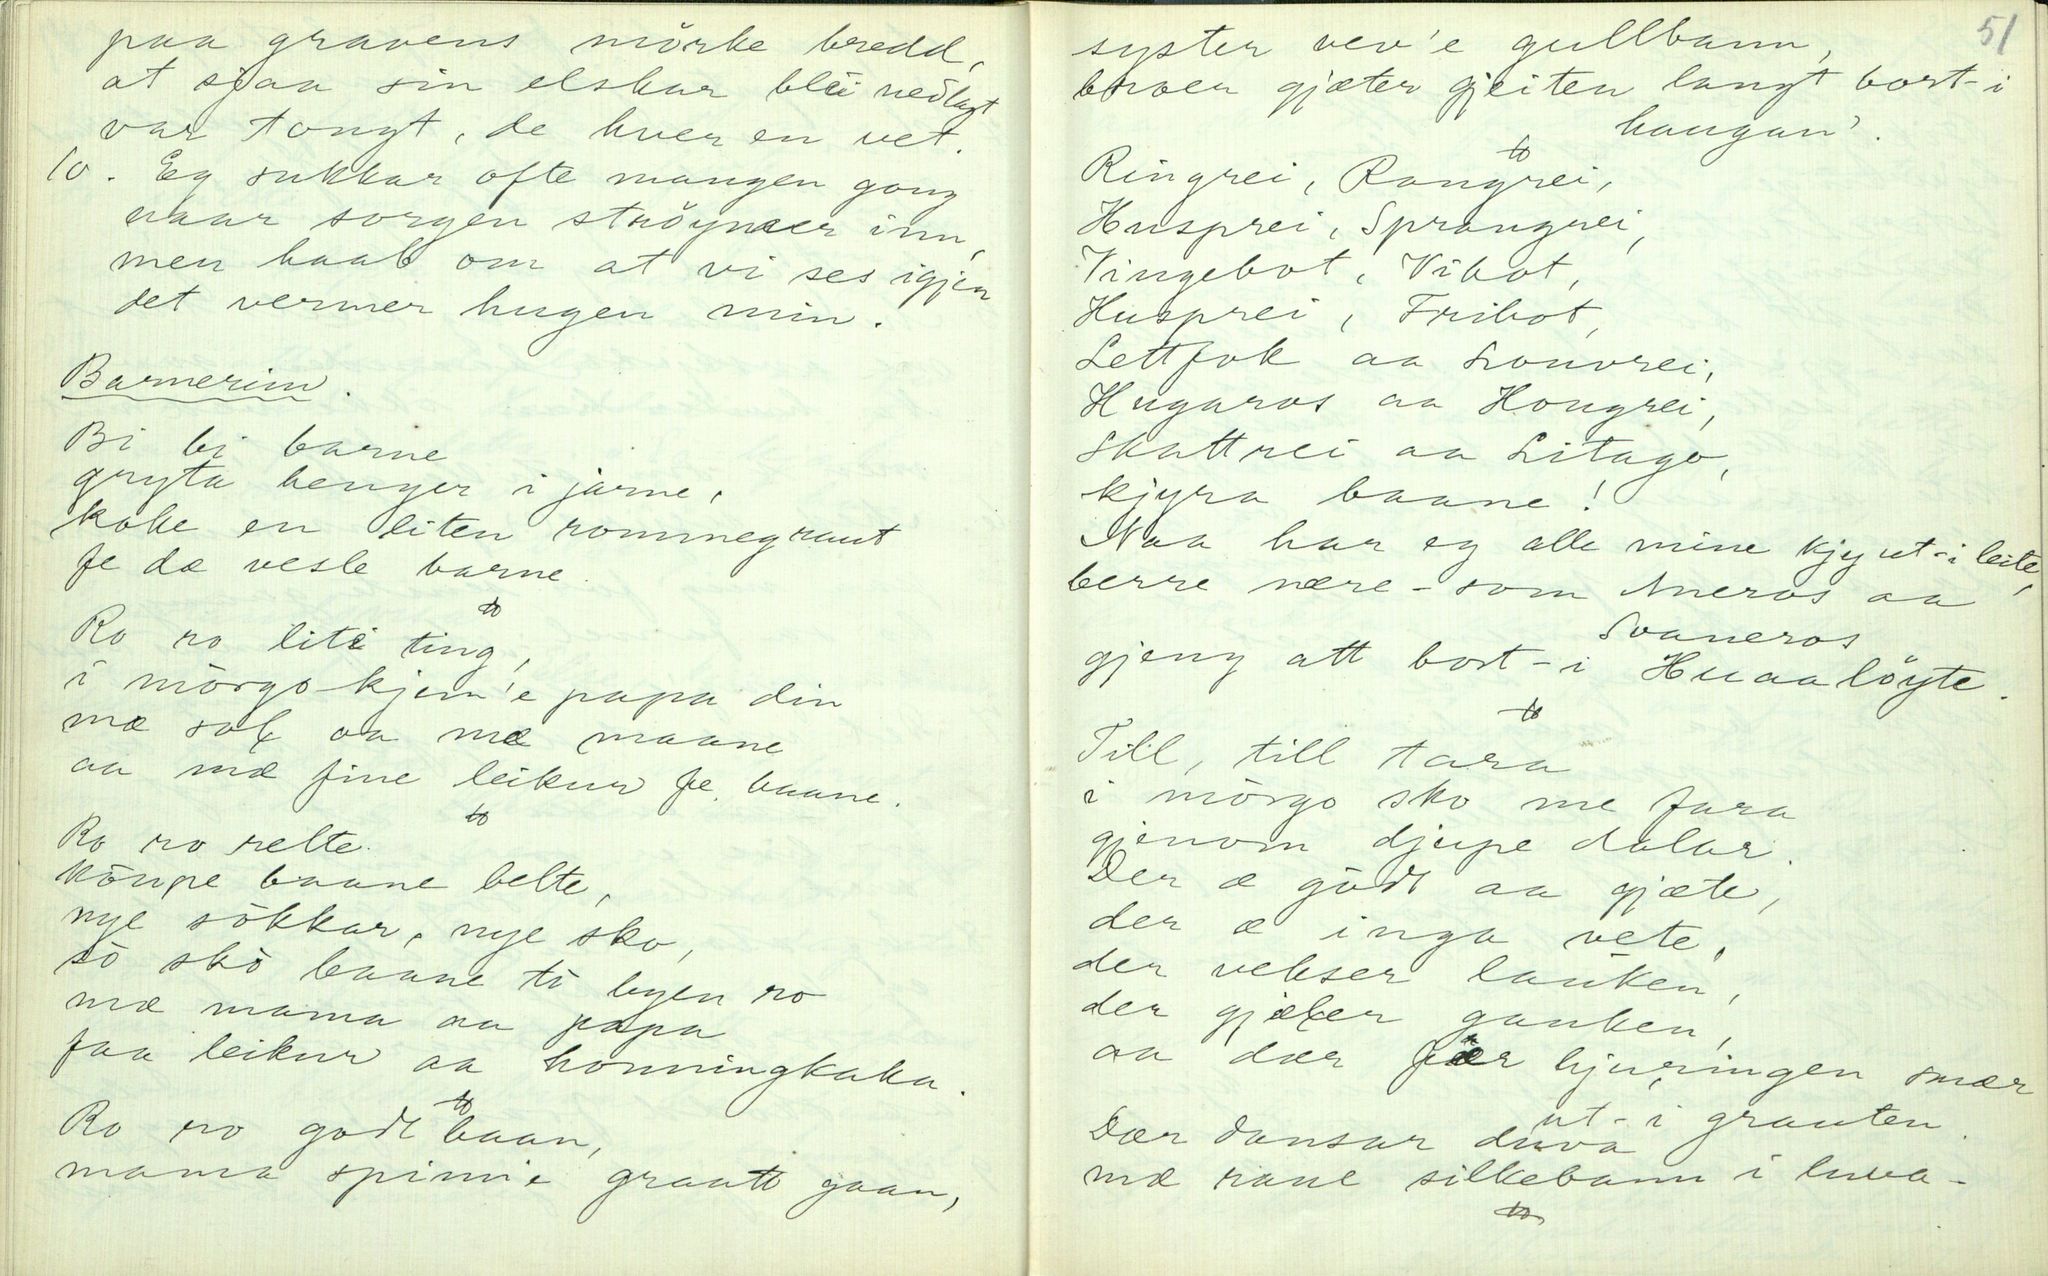 paa gravens mörke bredd,
at sjaa sin elskar blei nedlagt
var tongt, de hver en vet.
10. Eg sukkar ofte mangen gong
naar sorgen ströymer inn,
men haab om at vi ses igjen
det vermer hugen min.
Barnerim.
Bi bi barne
gryta henger i jarne,
koke en liten rommegraut
fe dæ vesle barne.
Ro ro liti ting,
i mörgo kjem'e papa din
mæ sol aa mæ maane
aa mæ fine leikur fe baane.
Ro ro relte
köupe baane belte,
nye sökkar, nye sko,
so sko baane ti byen ro
mæ mama aa papa
faa leikur aa honningkaka.
Ro ro godt baan,
mama spinn'e graatt gaan,
51
syster vev'e gullbann,
broer gjæter gjeiten langt bort-i
haugan'.
Ringrei, Rangrei,
Husprei, Sprangrei,
Vingebot, Vibot,
Husprei, Fribot,
Lettfok aa Lonvrei,
Hugaros aa Hongrei,
Skattrei aa Litago,
kjyra baane!
Naa har eg alle mine kjy ut-i leite,
berre nære-som Mneros aa
Svaneros
gjeng att bort-i Huaalöyte.
Till, till tara
i mörgo sko me fara
gjenom djupe dalar.
Der æ godt aa gjæte,
der æ inga vete,
der vekser lauken,
der gjæler gauken,
aa dær fær hjuringen smær
ut-i grauten.
Dær dansar duva
mæ raue silkebann i luva-